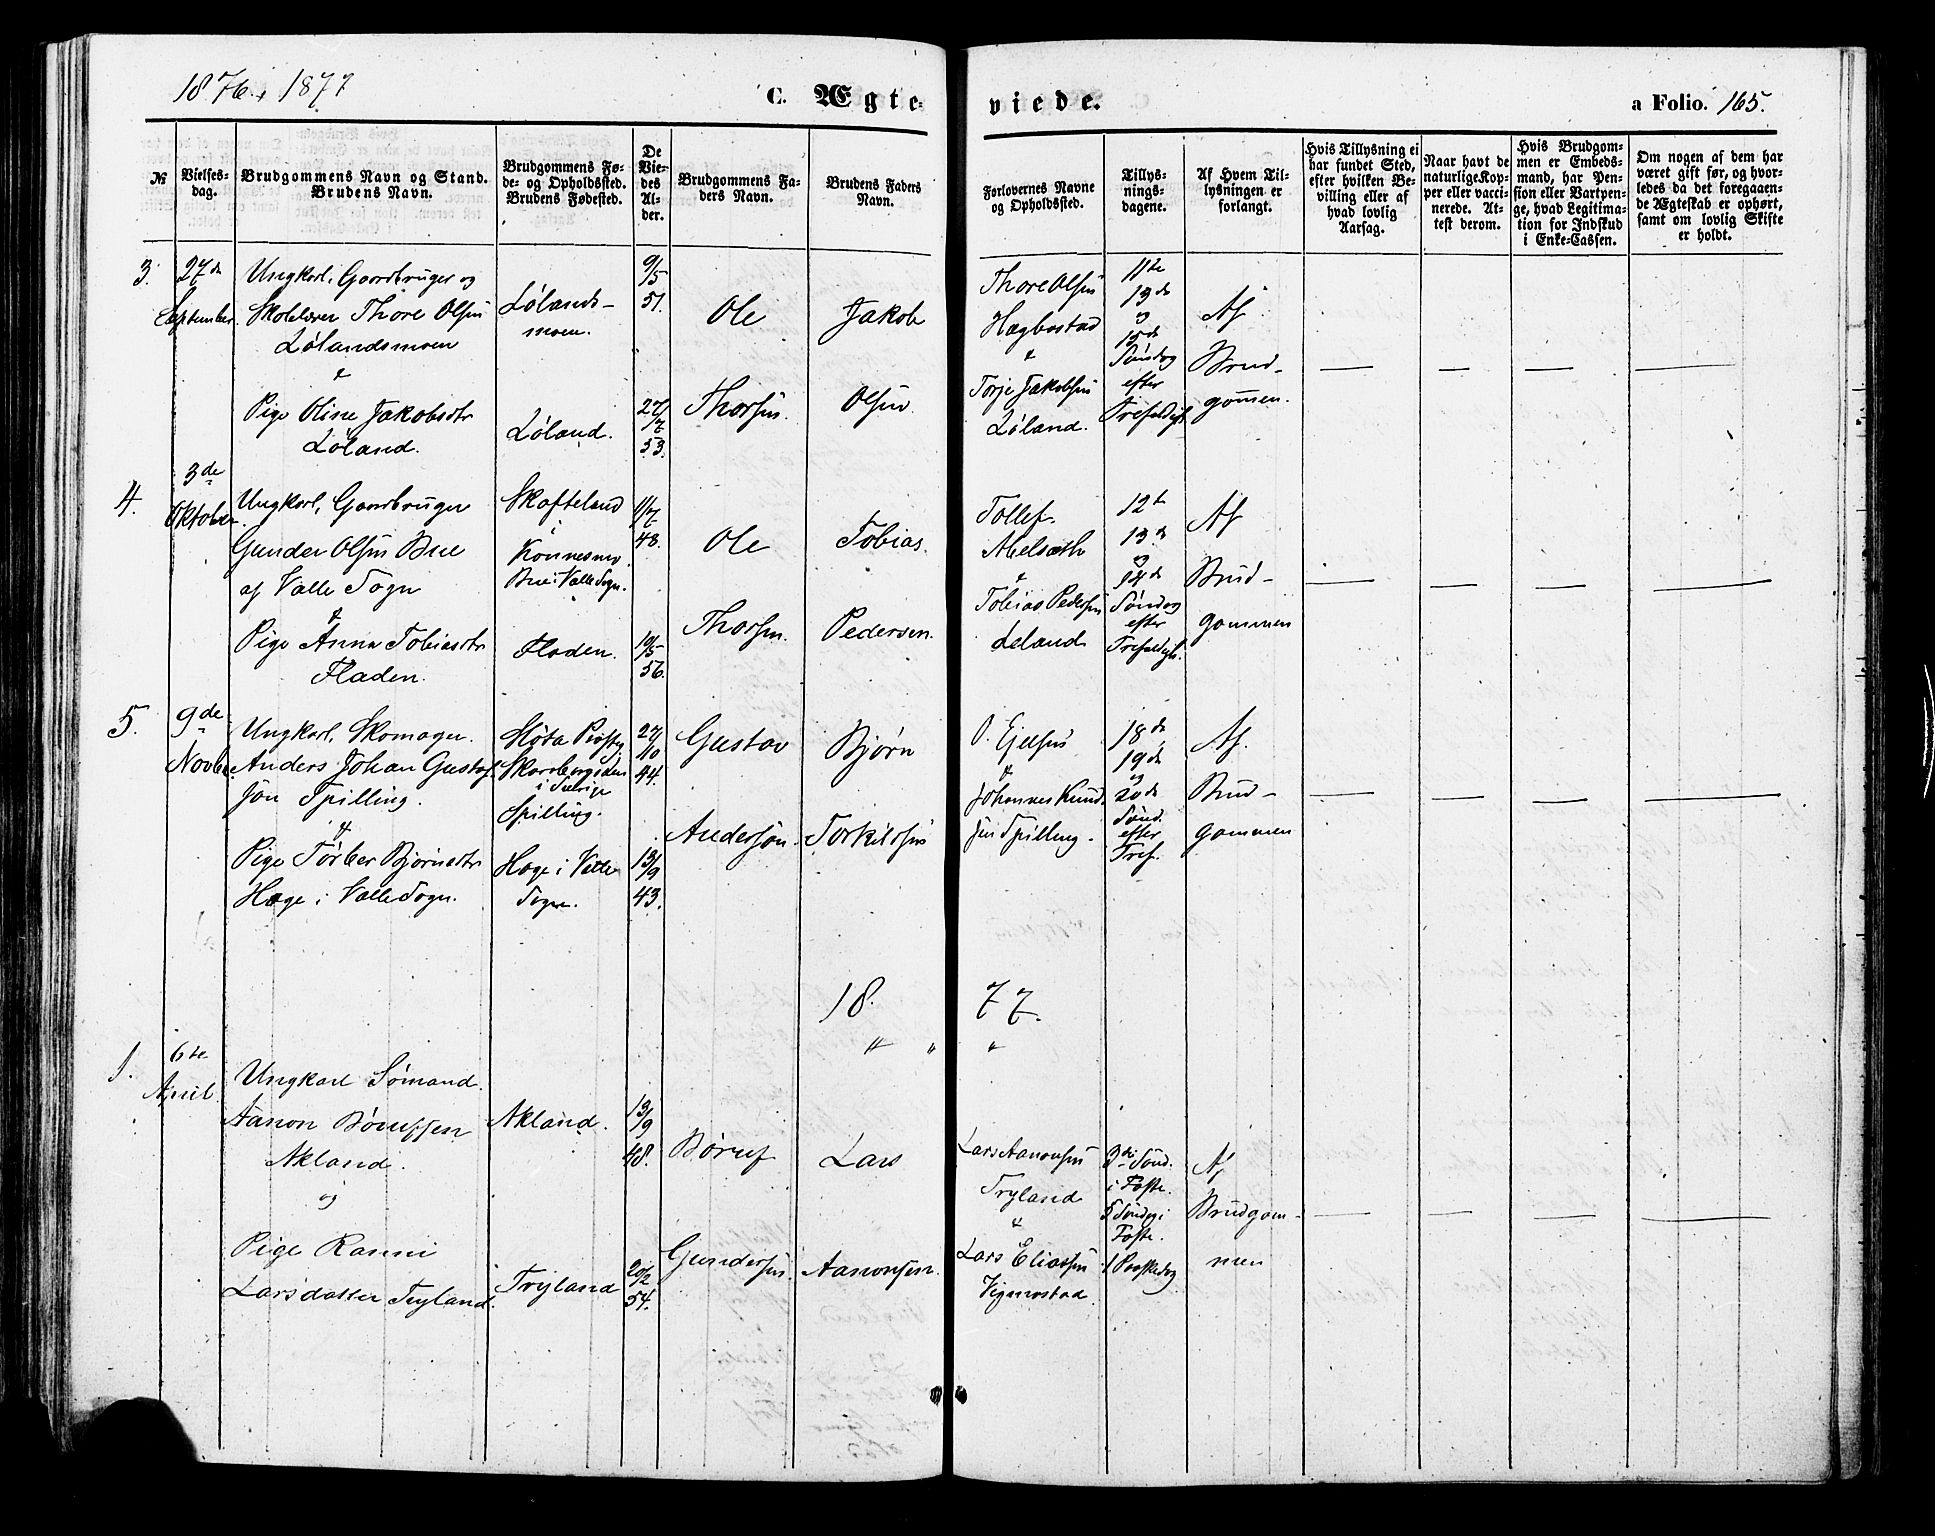 1876, 1877
C. Ægte-
viede.
a Folio. 165.
№
Vielses-
dag.
Brudgommens Navn og Stand.
Brudens Navn.
Brudgommens Fø-
de- og Opholdssted.
Brudens Fødested.
De
Vie-
des
Al-
der.
Brudgommens Fa-
ders Navn.
Brudens Faders
Navn.
Forlovernes Navne
og Opholdssted.
Tillys-
nings-
dagene.
Af Hvem Til-
lysningen er
forlangt.
Hvis Tillysning ei
har fundet Sted,
efter hvilken Be-
villing eller af
hvad lovlig
Aarsag.
Naar havt de
naturlige Kop-
per eller vacci-
nerede. At-
test derom.
Hvis Brudgom-
men er Embeds-
mand, har Pen-
sion eller Vartpen-
ge, hvad Legitima-
tion for Indskud
i Enke-Cassen.
Om nogen af dem har
været gift før, og hvor-
ledes da det foregaaen-
de Ægteskab er ophørt,
samt om lovlig Skifte
er holdt.
3.
27de
September.
Ungkarl, Gaardbruger og
Skolelærer Thore Olsen
Lølandsmoen
&
Pige Oline Jakobsdtr
Løland.
Lølands-
moen.
Løland.
9/5
51.
27/7
53.
Ole
Thorsen.
Jakob
Olsen.
Thore Olsen
Hægbostad
&
Torje Jakobsen
Løland.
11te
13de
og
15de
Søndag
efter
Trefoldigh.
Af
Brud-
gommen.
4.
3de
Oktober.
Ungkarl, Gaardbruger
Gunder Olsen Bue
af Valle Sogn
&
Pige Anna Tobiasdtr
Fladen.
Skofteland
i
Konnesmo.
Bue i Valle Sogn.
Fladen.
11/7
48.
10/5
56.
Ole
Thorsen.
Tobias.
Pedersen.
Tollef.
Abelsæth
&
Tobias Pedersen
Leland
12te
13de
og
14de
Søndag
efter
Trefoldigh.
Af
Brud-
gommen
5.
9de
Novbr.
Ungkarl, Skomager.
Anders Johan Gustaf
son Spilling.
&
Pige Tørber Bjørnsdtr
Hæge i Valle Sogn.
Skarsborgslen
i Sverige
Spilling.
Hæge i Valle
Sogn.
27/10
44.
13/9
43.
Gustav
Anderson.
Bjørn
Torkildsen
O. Ejelsen
&
Johannes Knud
sen Spilling.
18de
19de
og
20de
Sønd.
efter
Tref.
Af
Brud-
gommen
1877.
1.
6te
April.
Ungkarl Sømand
Aanon Børufsen
Akland.
og
Pige Ranni
Larsdatter Tryland.
Akland.
Tryland
13/9
48.
20/2
54.
Børuf
Gundersen.
Lars
Aanonsen.
Lars Aanonsen
Tryland
&
Lars Eliassen
Vigmostad.
3die Sønd.
i Faste.
5 Søndag i
Faste.
1 Paaskedag
Af
Brudgom-
men